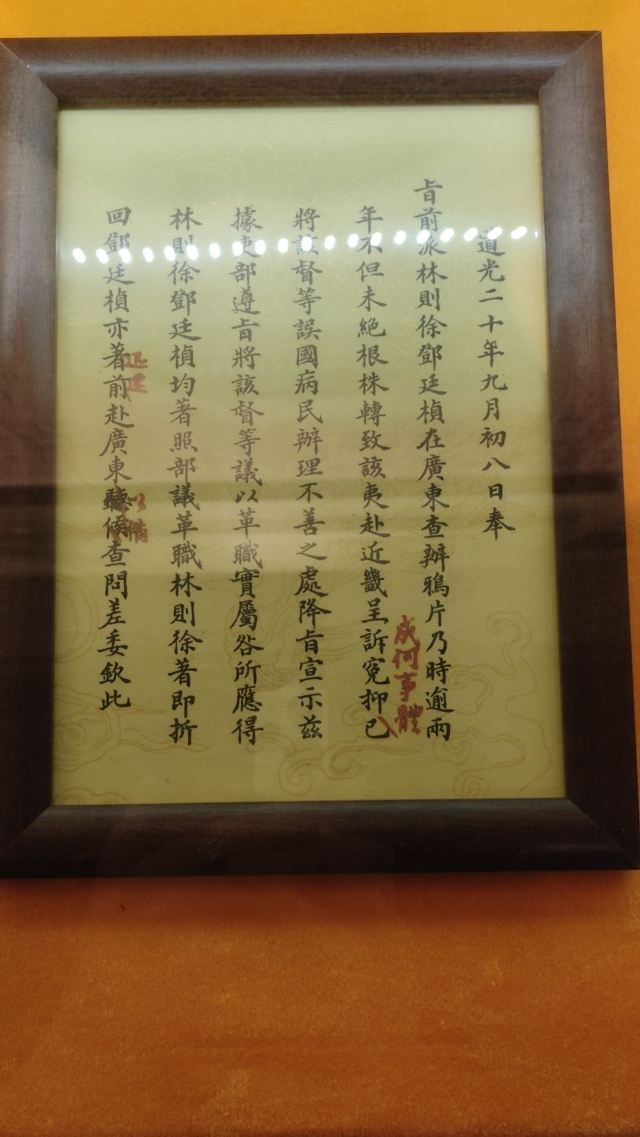 道光二十年九月初八日奉
旨前派林則徐鄧廷楨在廣東查辦鴉片乃時逾兩
成何事體
年不但未絕根株轉致該夷赴近畿呈訴冤抑已
將該督等誤國病民辦理不善之處降旨宣示茲
據吏部遵旨將該督等議以革職實屬咎所應得
林則徐鄧廷楨均著照部議革職林則徐著即折
迅速
以備
回鄧廷楨亦著前赴廣東聽候查問差委欽此